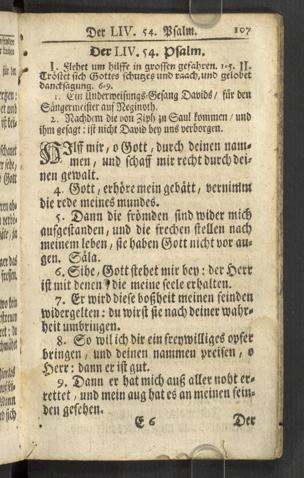 Der LIV. 54. Psalm. 107
Der LIV. 54. Psalm.
I. Flehet um hilffe in grossen gefahren. 1-5. II.
Tröstet sich Gottes schutzes und raach, und gelobet
dancksagung. 6-9.
1. Ein Underweisungs-Gesang Davids / für den
Sängermeister auf Neginoth.
2. Nachdem die von Ziph zu Saul kommen / und
ihm gesagt: ist nicht David bey uns verborgen.
Hilff mir, o Gott, durch deinen nam-
men, und schaff mir recht durch dei-
nen gewalt.
4. Gott, erhöre mein gebätt, vernimm
die rede meines mundes.
5. Dann die frömden sind wider mich
aufgestanden, und die frechen stellen nach
meinem leben, sie haben Gott nicht vor au-
gen. Säla.
6. Sihe, Gott stehet mir bey: der Herr
ist mit denen / die meine seele erhalten.
7. Er wird diese boßheit meinen feinden
widergelten: du wirst sie nach deiner wahr-
heit umbringen.
8. So wil ich dir ein freywilliges opfer
bringen, und deinen nammen preisen, o
Herr: dann er ist gut.
9. Dann er hat mich auß aller noht er-
rettet, und mein aug hat es an meinen fein-
den gesehen.
E 6 Der